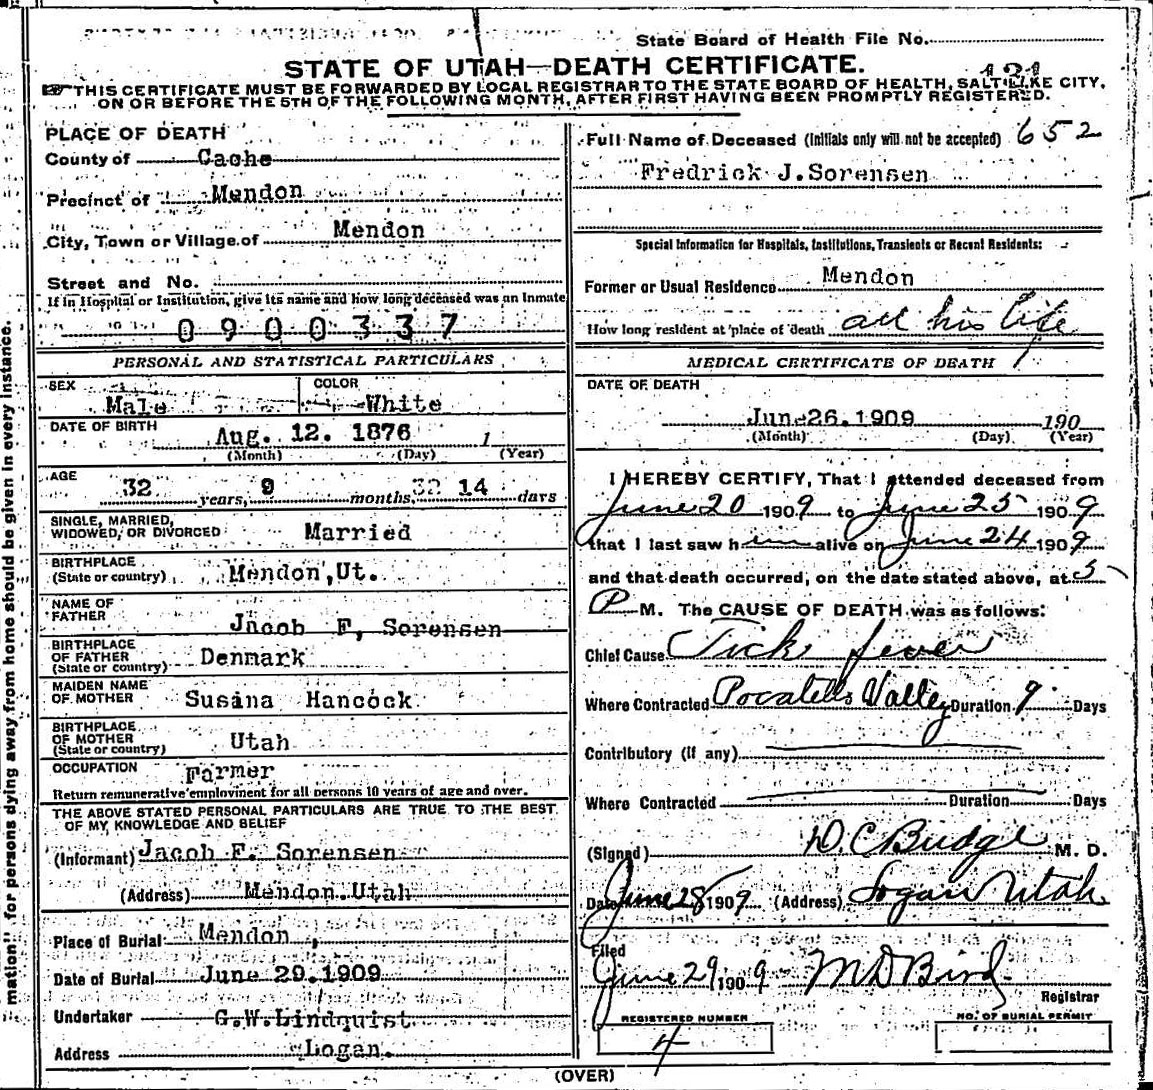 State Board of Health File No.
STATE OF UTAH—DEATH CERTIFICATE.
121
THIS CERTIFICATE MUST BE FORWARDED BY LOCAL REGISTRAR TO THE STATE BOARD OF HEALTH, SALT LAKE CITY,
ON OR BEFORE THE 5TH OF THE FOLLOWING MONTH, AFTER FIRST HAVING BEEN PROMPTLY REGISTERED.
PLACE OF DEATH
County of Cache
Precinct of Mendon
City, Town or Village of Mendon
Street and No.
If in Hospital or Institution, give its name and how long deceased was an Inmate
0900337
PERSONAL AND STATISTICAL PARTICULARS
SEX Male COLOR White
DATE OF BIRTH Aug. 12. 1876 1
(Month) (Day) (Year)
AGE 32 years, 9 months, 32 14 days
SINGLE, MARRIED,
WIDOWED, OR DIVORCED Married
BIRTHPLACE
(State or country) Mendon, Ut.
NAME OF
FATHER Jacob F, Sorensen
BIRTHPLACE
OF FATHER
(State or country) Denmark
MAIDEN NAME
OF MOTHER Susina Hancock
BIRTHPLACE
OF MOTHER
(State or country) Utah
OCCUPATION Farmer
Return remunerative employment for all persons 10 years of age and over.
THE ABOVE STATED PERSONAL PARTICULARS ARE TRUE TO THE BEST
OF MY KNOWLEDGE AND BELIEF
(Informant) Jacob F. Sorensen
(Address) Mendon.Utah
Place of Burial Mendon ,
Date of Burial June 29.1909
Undertaker G.W.Lindquist
Address Logan.
Full Name of Deceased (Initials only will not be accepted) 652
Fredrick J.Sorensen
Special Information for Hospitals, Institutions, Transients or Recent Residents:
Former or Usual Residence Mendon
How long resident at place of death all his life
MEDICAL CERTIFICATE OF DEATH
DATE OF DEATH
June 26.1909 190
(Month) (Day) (Year)
I HEREBY CERTIFY, That I attended deceased from
June 20 1909 to June 25 1909
that I last saw him alive on June 24 1909
and that death occurred, on the date stated above, at 5
P M. The CAUSE OF DEATH was as follows:
Chief Cause Tick fever
Where Contracted Pocatello Valley Duration 9 Days
Contributory (if any)
Where Contracted Duration Days
(Signed) D. C. Budge M. D.
Date June 28 1909 (Address) Logan Utah
Filed
June 29 1909 M D Bird
Registrar
REGISTERED NUMBER
4
NO. OF BURIAL PERMIT
(OVER)
mation." for persons dying away from home should be given in every instance.